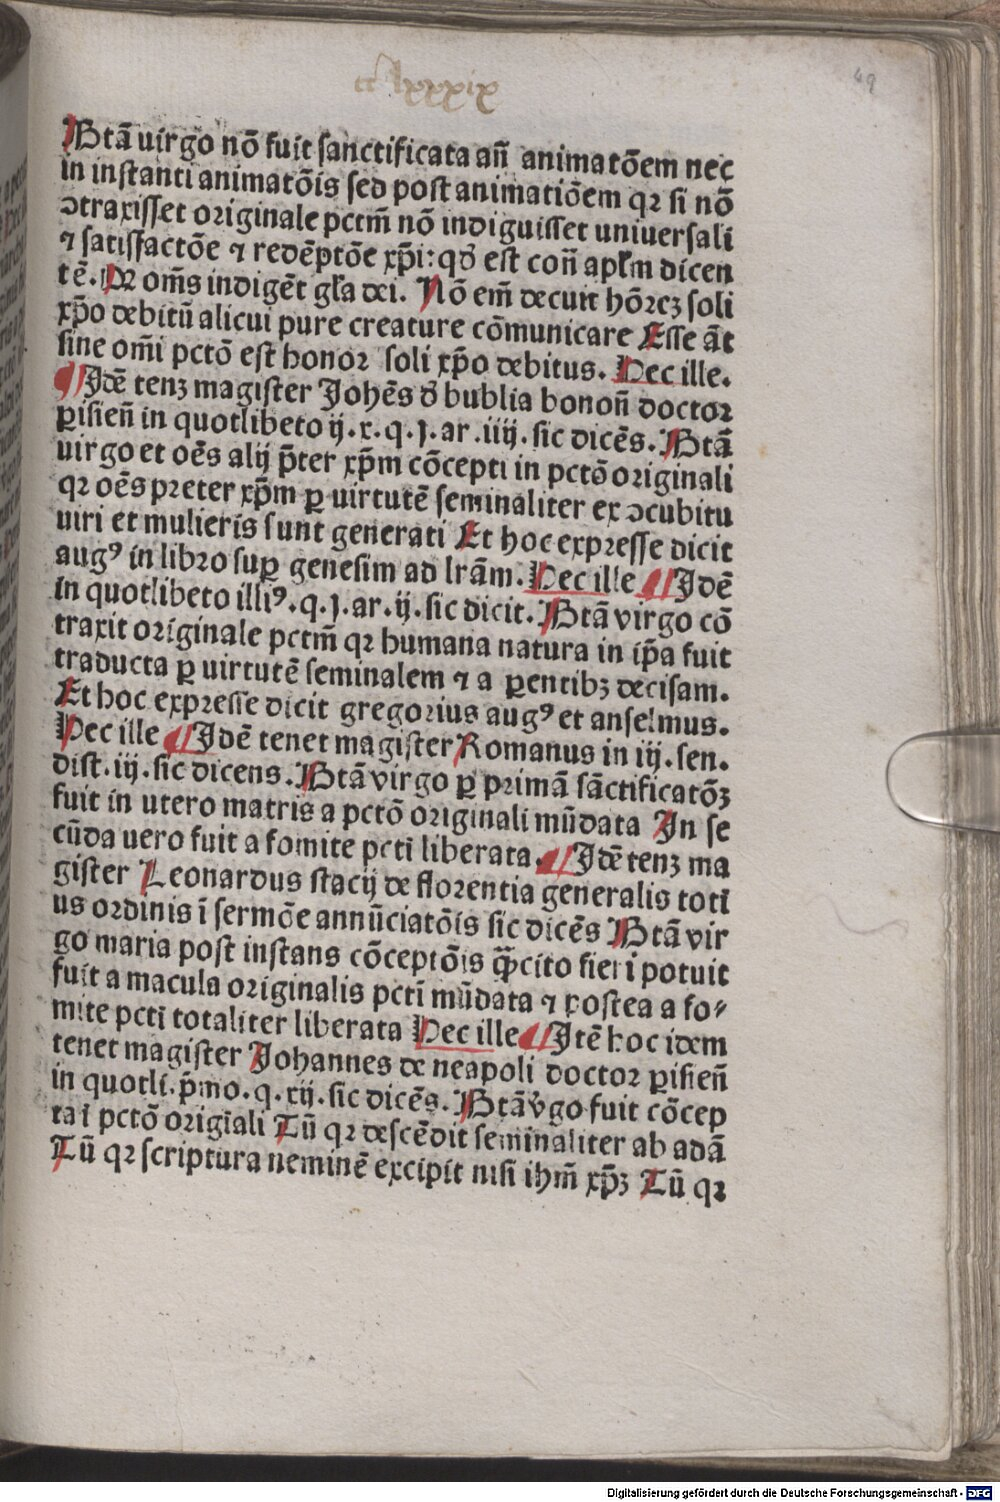 cclxxxix
49
Btã uirgo nõ fuit sanctificata añ animatõem nec
in instanti animatõis sed post animatiõem qꝛ si nõ
ↄtraxisset originale pctm̃ nõ indiguisset uniuersali
⁊ satisfactõe ⁊ redẽptõe xp̃i: qđ est coñ apl̃m dicen
tẽ. Qꝛ om̃s indigẽt gl̃a dei. Nõ em̃ decuit hõreꝫ soli
xp̃o debitũ alicui pure creature cõmunicare Esse ãt
sine om̃i pctõ est honor soli xp̃o debitus. Hec ille.
¶ Idẽ tenꝫ magister Johẽs đ bublia bonoñ doctor
ꝑisieñ in quotlibeto ij. r. q. j. ar. iiij. sic dicẽs. Btã
uirgo et oẽs alij p̃ter xp̃m cõcepti in pctõ originali
qꝛ oẽs preter xp̃m ꝑ uirtutẽ seminaliter ex ↄcubitu
uiri et mulieris sunt generati Et hoc expresse dicit
augꝰ in libro suꝑ genesim ad lr̃am. Hec ille ¶ Idẽ
in quotlibeto illiꝰ. q. j. ar. ij. sic dicit. Btã virgo cõ
traxit originale pctm̃ qꝛ humana natura in ip̃a fuit
traducta ꝑ uirtutẽ seminalem ⁊ a ꝑentibꝫ decisam.
Et hoc expresse dicit gregorius augꝰ et anselmus.
Hec ille ¶ Idẽ tenet magister Romanus in iij. sen.
dist. iij. sic dicens. Btã virgo ꝑ primã sãctificatõꝫ
fuit in utero matris a pctõ originali mũdata In se
cũda uero fuit a fomite pcti liberata. ¶ Idẽ tenꝫ ma
gister Leonardus stacij de florentia generalis toti
us ordinis ĩ sermõe annũciatõis sic dicẽs Btã vir
go maria post instans cõceptõis q̃ꝫcito fieri potuit
fuit a macula originalis pcti mũdata ⁊ postea a fo⸗
mite pcti totaliter liberata Hec ille ¶ Itẽ hoc idem
tenet magister Johannes de neapoli doctor ꝑisieñ
in quotli. p̃mo. q. xij. sic dicẽs. Btã v̾go fuit cõcep
ta ĩ pctõ origĩali Tũ qꝛ descẽdit seminaliter ab adã
Tũ qꝛ scriptura neminẽ excipit nisi ihm̃ xp̃ꝫ Tũ qꝛ
Digitalisierung gefördert durch die Deutsche Forschungsgemeinschaft - DFG